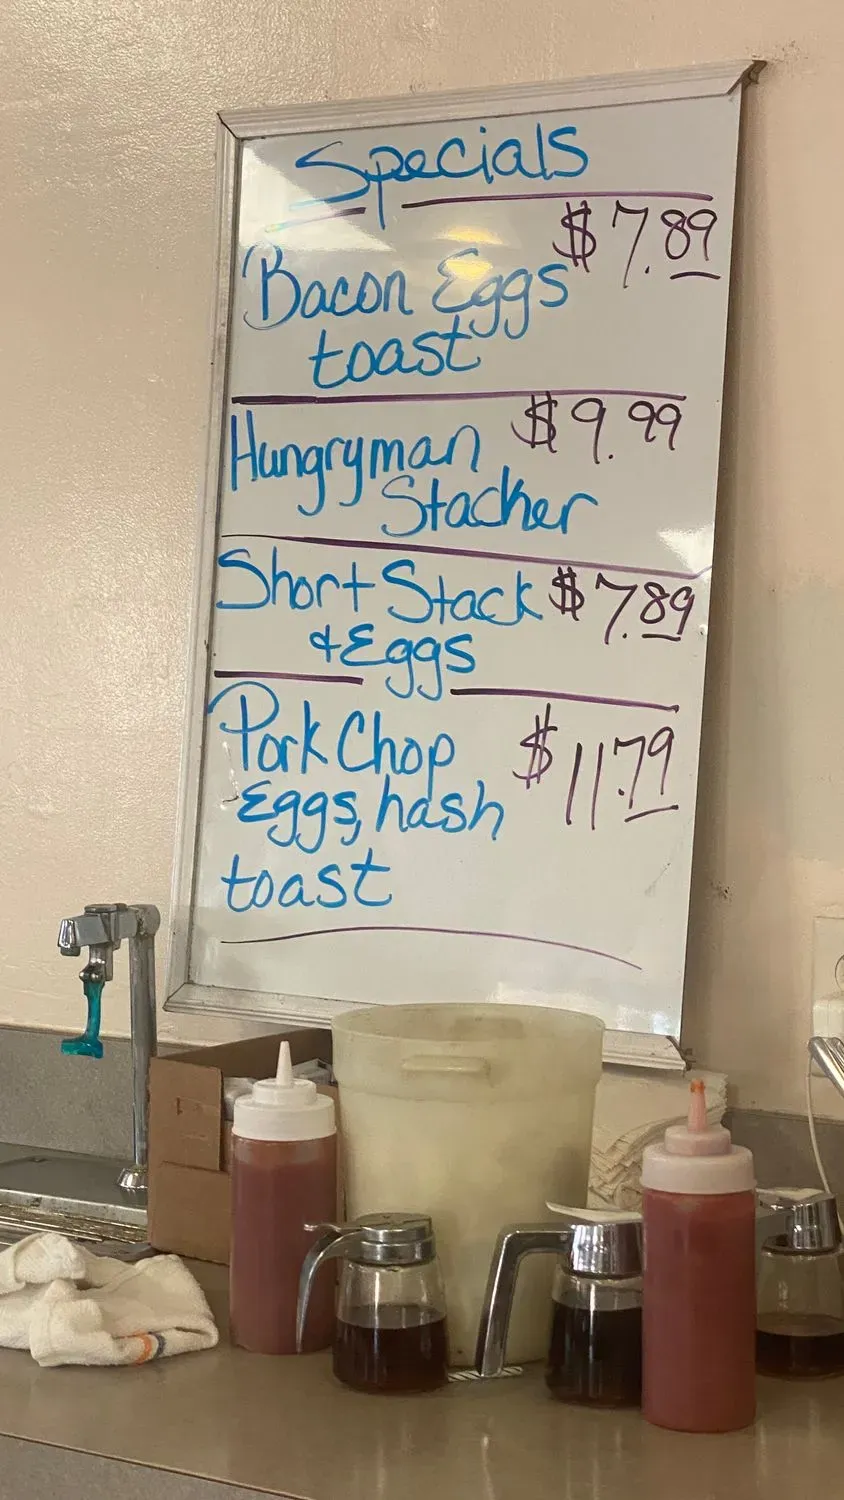 Specials
Bacon Eggs $7.89
toast
Hungryman $9.99
Stacker
Short Stack $7.89
& Eggs
Pork Chop $11.79
Eggs, hash
toast